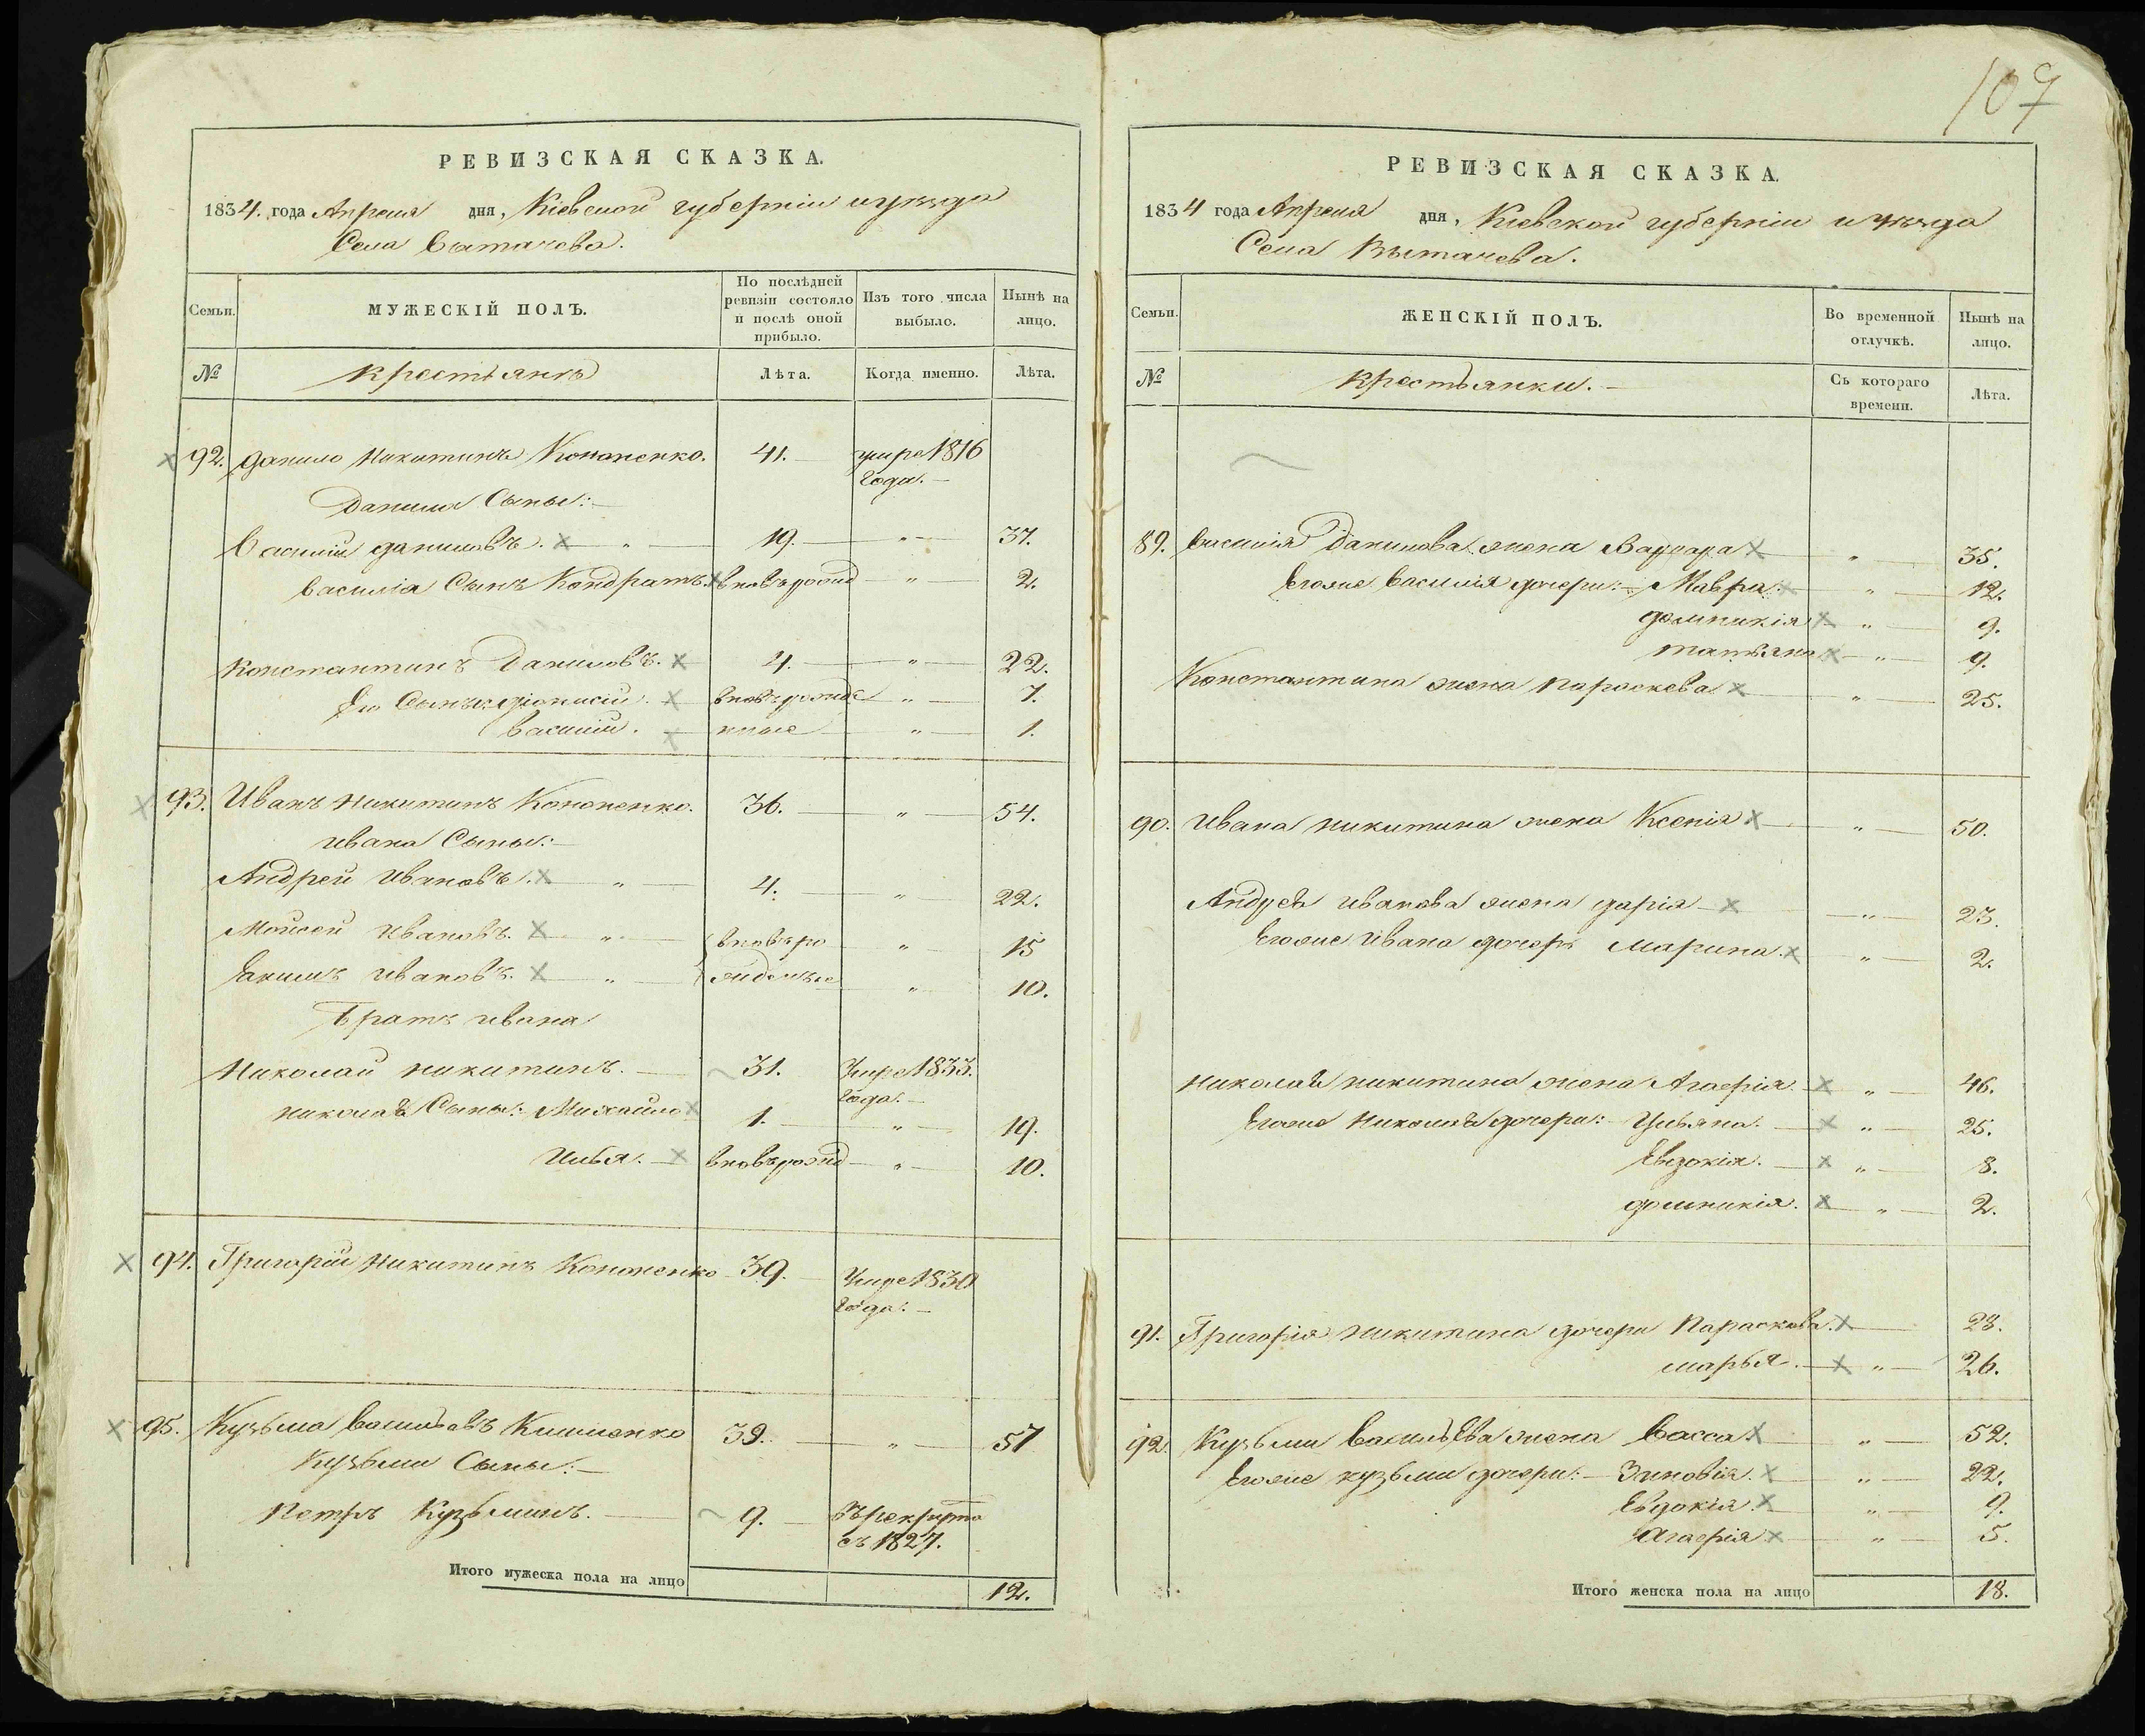 107
РЕВИЗСКАЯ СКАЗКА.
1834. года Апреля дня, Кіевской губерніи и уѣзда
Села Вытачева.
Семьи.
МУЖЕСКІЙ ПОЛЪ.
По послѣдней ревизіи состояло и послѣ оной прибыло.
Изъ того числа выбыло.
Нынѣ на лицо.
№
Крестьянъ
Лѣта.
Когда именно.
Лѣта.
92. Данило Никитинъ Кононенко. 41. умре 1816
года.
Данила Сыны:
Василій Даниловъ. 19. " 37.
Василія Сынъ Кондратъ. вновь рожд " 2.
Константинъ Даниловъ. 4. " 22.
Его Сыны: Діонисій. вновь рожде " 7.
Василій. нные " 1.
93. Иванъ Никитинъ Кононенко. 36. " 54.
Ивана Сыны:
Андрей Ивановъ. " 4. " 22.
Мойсей Ивановъ. " вновь ро " 15
Якимъ Ивановъ. " жденные " 10.
Братъ Ивана
Николай Никитинъ. 31. Умре 1833.
года.
Николая Сыны: Михайло 1. " 19.
Илья. вновь рожд " 10.
94. Григорій Никитинъ Кононенко 39. Умре 1830
года.
95. Кузьма Васильевъ Кишенко 39. " 57
Кузьми Сыны:
Петръ Кузьминъ. 9. въ рекрута
съ 1827.
Итого мужеска пола на лицо 12.
РЕВИЗСКАЯ СКАЗКА.
1834 года Апреля дня, Кіевской губерніи и уѣзда
Села Вытачева.
Семьи.
ЖЕНСКІЙ ПОЛЪ.
Во временной отлучкѣ.
Нынѣ на лицо.
№
Крестьянки.
Съ котораго времени.
Лѣта.
89. Василія Данилова жена Варвара " 35.
Егоже Василія дочери: Мавра " 12.
Домникія " 9.
Татьяна " 9.
Константина жена Параскева " 25.
90. Ивана Никитина жена Ксенія " 50.
Андрея Иванова жена Дарія " 23.
Егоже Ивана дочерь Марина. " 2.
Николая Никитина жена Агафія. " 46.
Егоже Николая дочери: Ульяна. " 25.
Евдокія. " 8.
Домникія. " 2.
91. Григорія Никитина дочери Параскева. 28.
Марья. " 26.
92. Кузьми Васильева жена Васса " 52.
Егоже Кузьми дочери: Зиновія. " 22.
Евдокія. " 9.
Агафія " 5.
Итого женска пола на лицо 18.